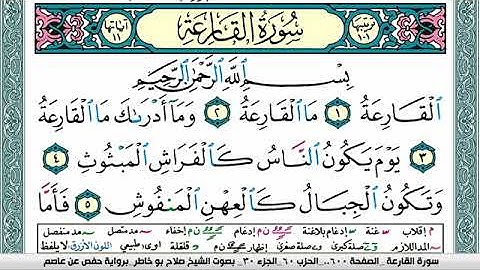 ترتيبها ١٠١ سورة القارعة آياتها ١١
بِسْمِ ٱللَّهِ ٱلرَّحْمَٰنِ ٱلرَّحِيمِ
ٱلْقَارِعَةُ ١ مَا ٱلْقَارِعَةُ ٢ وَمَآ أَدْرَىٰكَ مَا ٱلْقَارِعَةُ
٣ يَوْمَ يَكُونُ ٱلنَّاسُ كَٱلْفَرَاشِ ٱلْمَبْثُوثِ ٤
وَتَكُونُ ٱلْجِبَالُ كَٱلْعِهْنِ ٱلْمَنفُوشِ ٥ فَأَمَّا
م إقلاب غنة إدغام بلاغنة إدغام إخفاء مد متصل مد منفصل
المد اللازم صلة كبرى صلة صغرى إظهار قلقلة طبيعي اللون الأزرق لا يلفظ
سورة القارعة _ الصفحة ٦٠٠ .. الحزب ٦٠ _ الجزء ٣٠ _ بصوت الشيخ صلاح بو خاطر _ برواية حفص عن عاصم